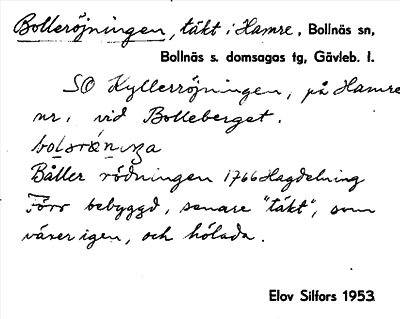 Bolleröjningen, täkt i Hamre, Bollnäs sn,
Bollnäs s. domsagas tg, Gävleb. l.
SO Kyllerröjningen, på Hamre
nr 1, vid Bolleberget.
Båller rödningen 1766 Hagdelning
Förr bebyggd, senare "täkt", som
växer igen, och hölada.
Elov Silfors 1953.